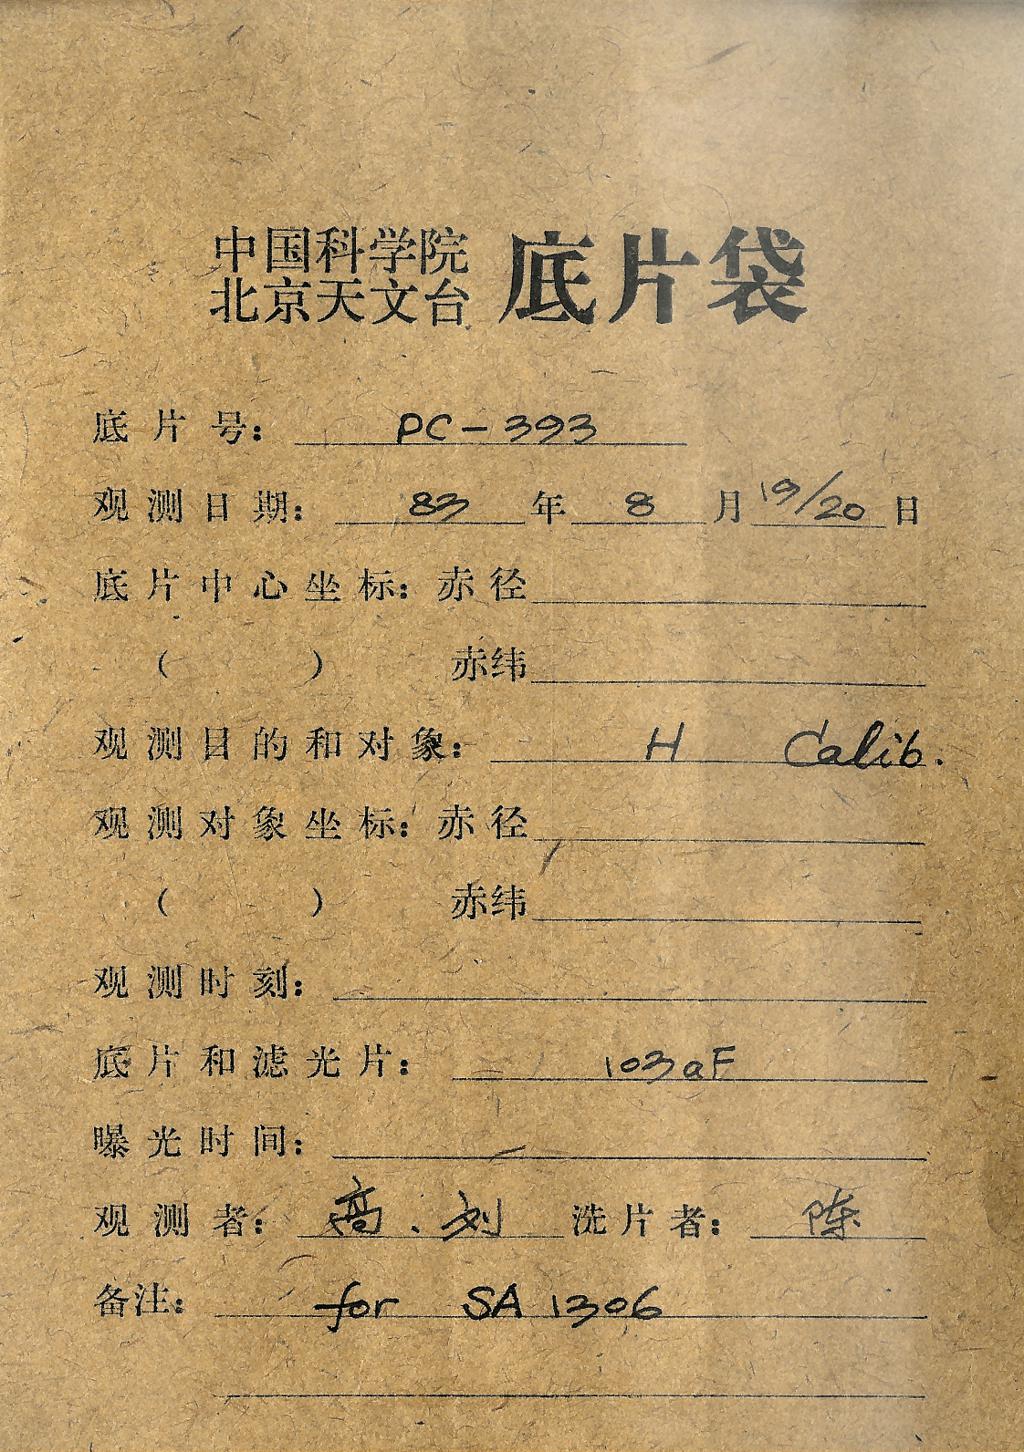 中国科学院
北京天文台 底片袋
底片号： PC-393
观测日期： 83 年 8 月 19/20 日
底片中心坐标：赤径
（ ） 赤纬
观测目的和对象： H Calib.
观测对象坐标：赤径
（ ） 赤纬
观测时刻：
底片和滤光片： 103aF
曝光时间：
观测者： 高、刘 洗片者： 陈
备注： for SA 1306